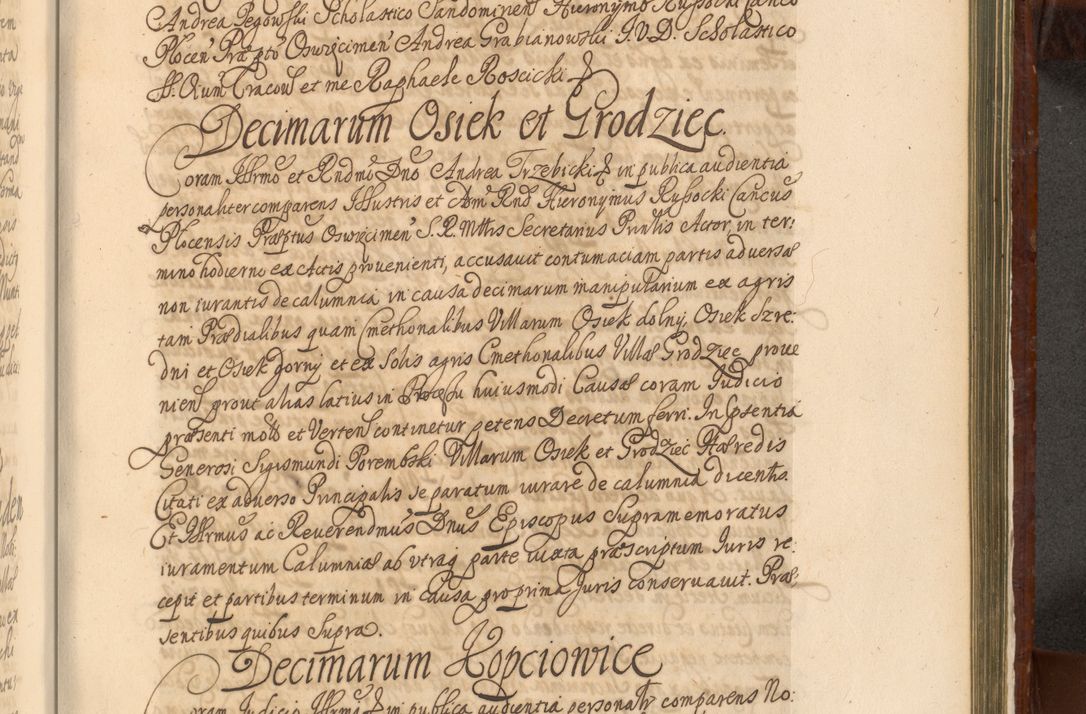 Andrea Pegowski Scholastico Sandomirien Hieronymo Russocki Canco
Plocen Præpto Oswięcimen Andrea Grabianowski J.V.D. Scholastico
et me Raphaele Roscicki
Decimarum Osiek et Grodziec.
Coram Illrmo et Rndmo Dno Andrea Trzebicki in publica audientia
personaliter comparens Illustris et Adm Rnd Hieronymus Russocki Cancus
Plocensis Præptus Oswięcimen S. R. Mttis Secretarius Prinlis Actor, in ter:
mino hodierno ex Actis provenienti, accusavit contumaciam partis adversæ
non iurantis de calumnia in causa decimarum manipularium ex agris
tam Prædialibus quam Cmethonalibus Villarum Osiek dolny, Osiek szre:
dni et Osiek gorny et ex solis agris Cmethonalibus Villæ Grodziec prove
nien prout alias latius in Processu huiusmodi Causæ coram Judicio
præsenti mott et Verten continetur petens Decretum ferri. In pśentia
Generosi Sigismundi Porembski Villarum Osiek et Grodziec Hæredis
Citati ex adverso Principalis se paratum iurare de calumnia dicentis.
Et Illrmus ac Reverendmus Dnus Episcopus Supramemoratus
iuramentum Calumniæ ab utraq parte iuxta præscriptum Juris re:
cepit et partibus terminum in Causa pro prima Juris conservavit. Præ:
sentibus quibus supra.
Decimarum Kopciowice
Coram Judicio Illrmi in publica audientia personaltr comparens No: